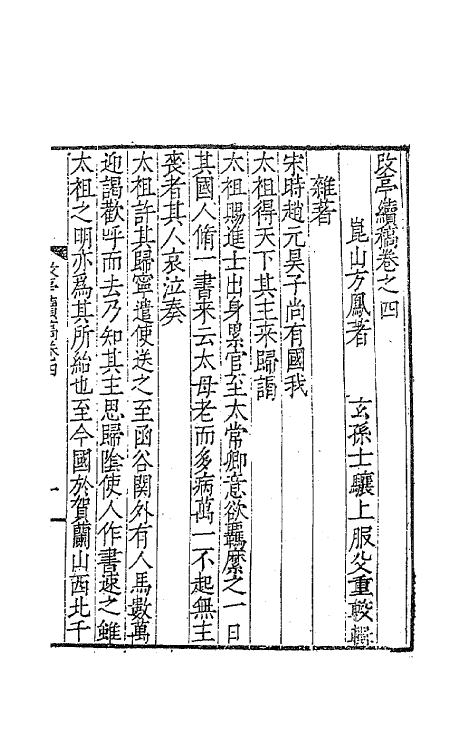 改亭續稿卷之四
崑山方鳳著　玄孫士驤上服父重較輯
雜著
宋時趙元昊子尚有國我
太祖得天下其主来歸謁
太祖賜進士出身累官至太常卿意欲羈縻之一日
其國人脩一書来云太母老而多病萬一不起無主
喪者其人哀泣奏
太祖許其歸寧遣使送之至函谷関外有人馬數萬
迎謁歡呼而去乃知其主思歸陰使人作書速之雖
太祖之明亦爲其所紿也至今國於賀蘭山西北千
改亭續稿卷四
一